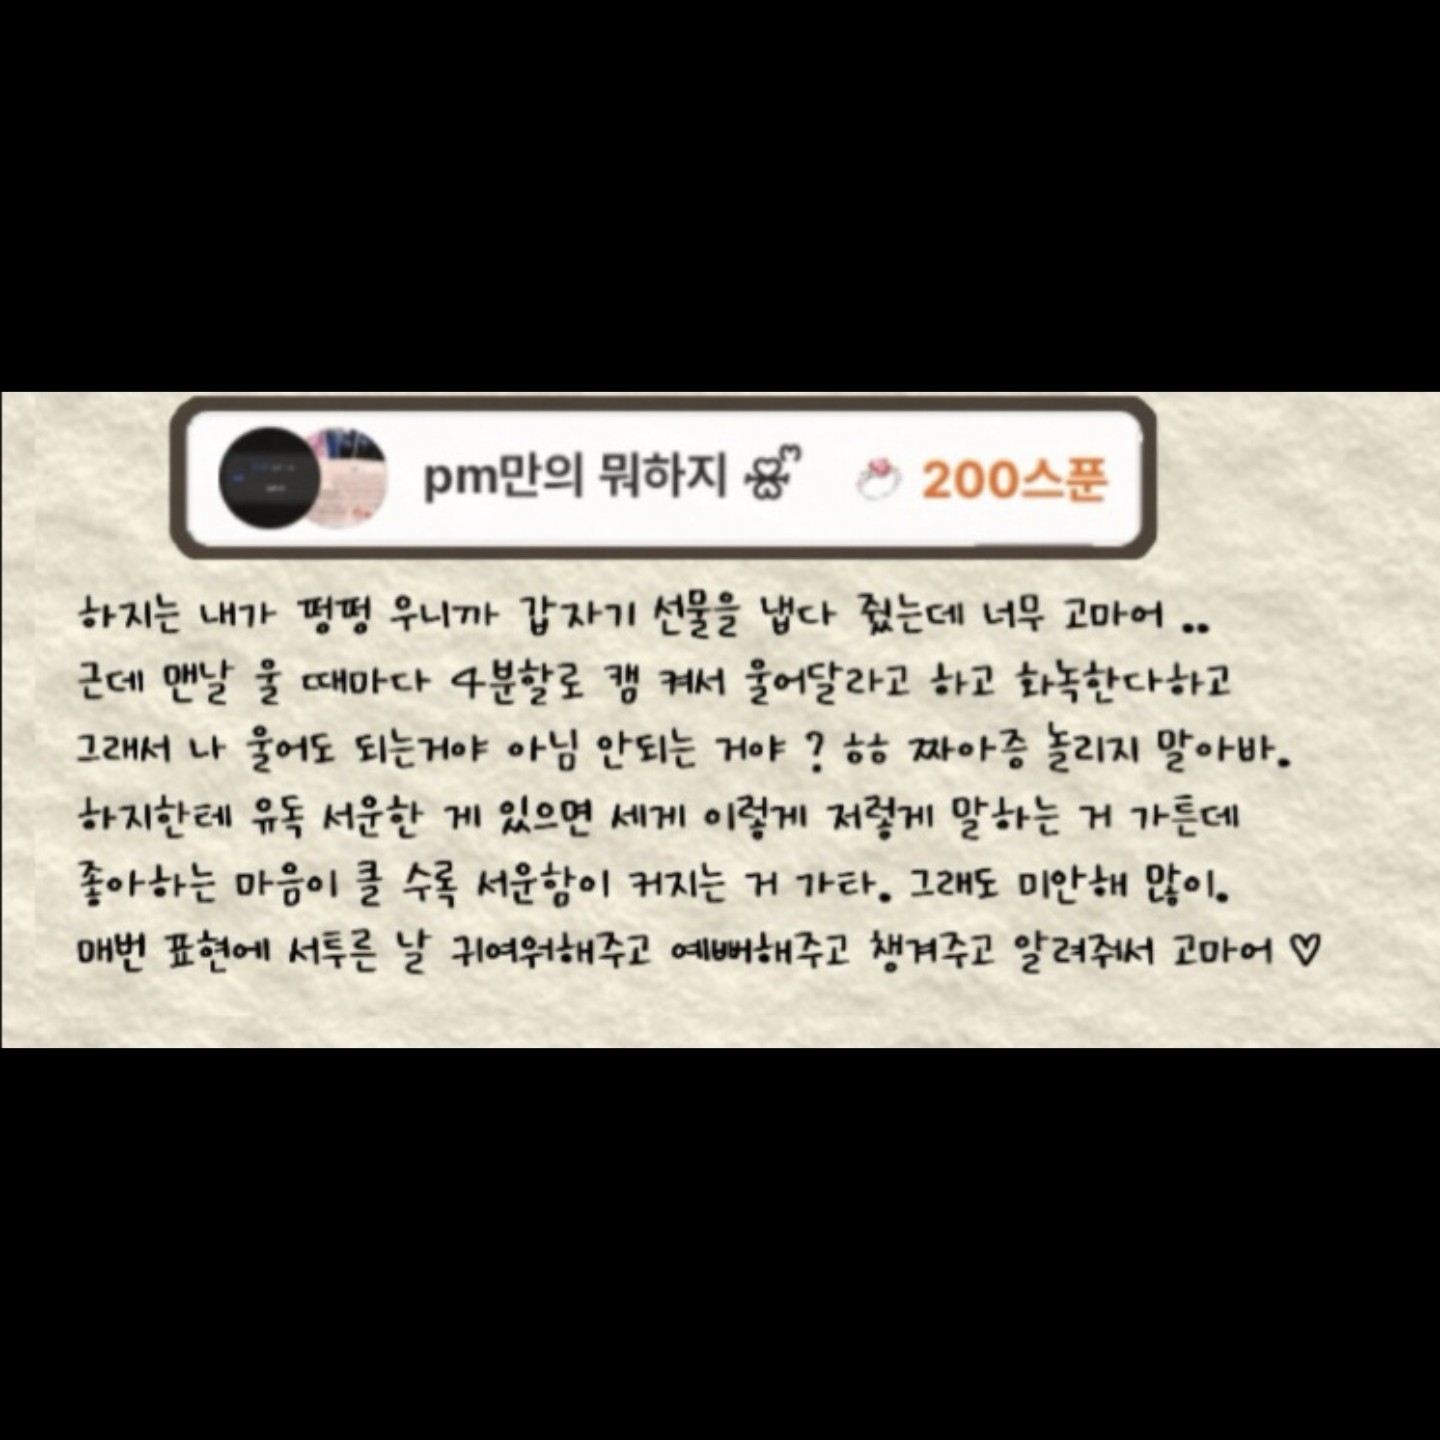 pm만의 뭐하지 200스푼
하지는 내가 펑펑 우니까 갑자기 선물을 냅다 줬는데 너무 고마어 ..
근데 맨날 울 때마다 4분할로 캠 켜서 울어달라고 하고 화녹한다하고
그래서 나 울어도 되는거야 아님 안되는 거야 ? ㅎㅎ 짜아증 놀리지 말아바.
하지한테 유독 서운한 게 있으면 세게 이렇게 저렇게 말하는 거 가튼데
좋아하는 마음이 클 수록 서운함이 커지는 거 가타. 그래도 미안해 많이.
매번 표현에 서투른 날 귀여워해주고 예뻐해주고 챙겨주고 알려줘서 고마어 ♡